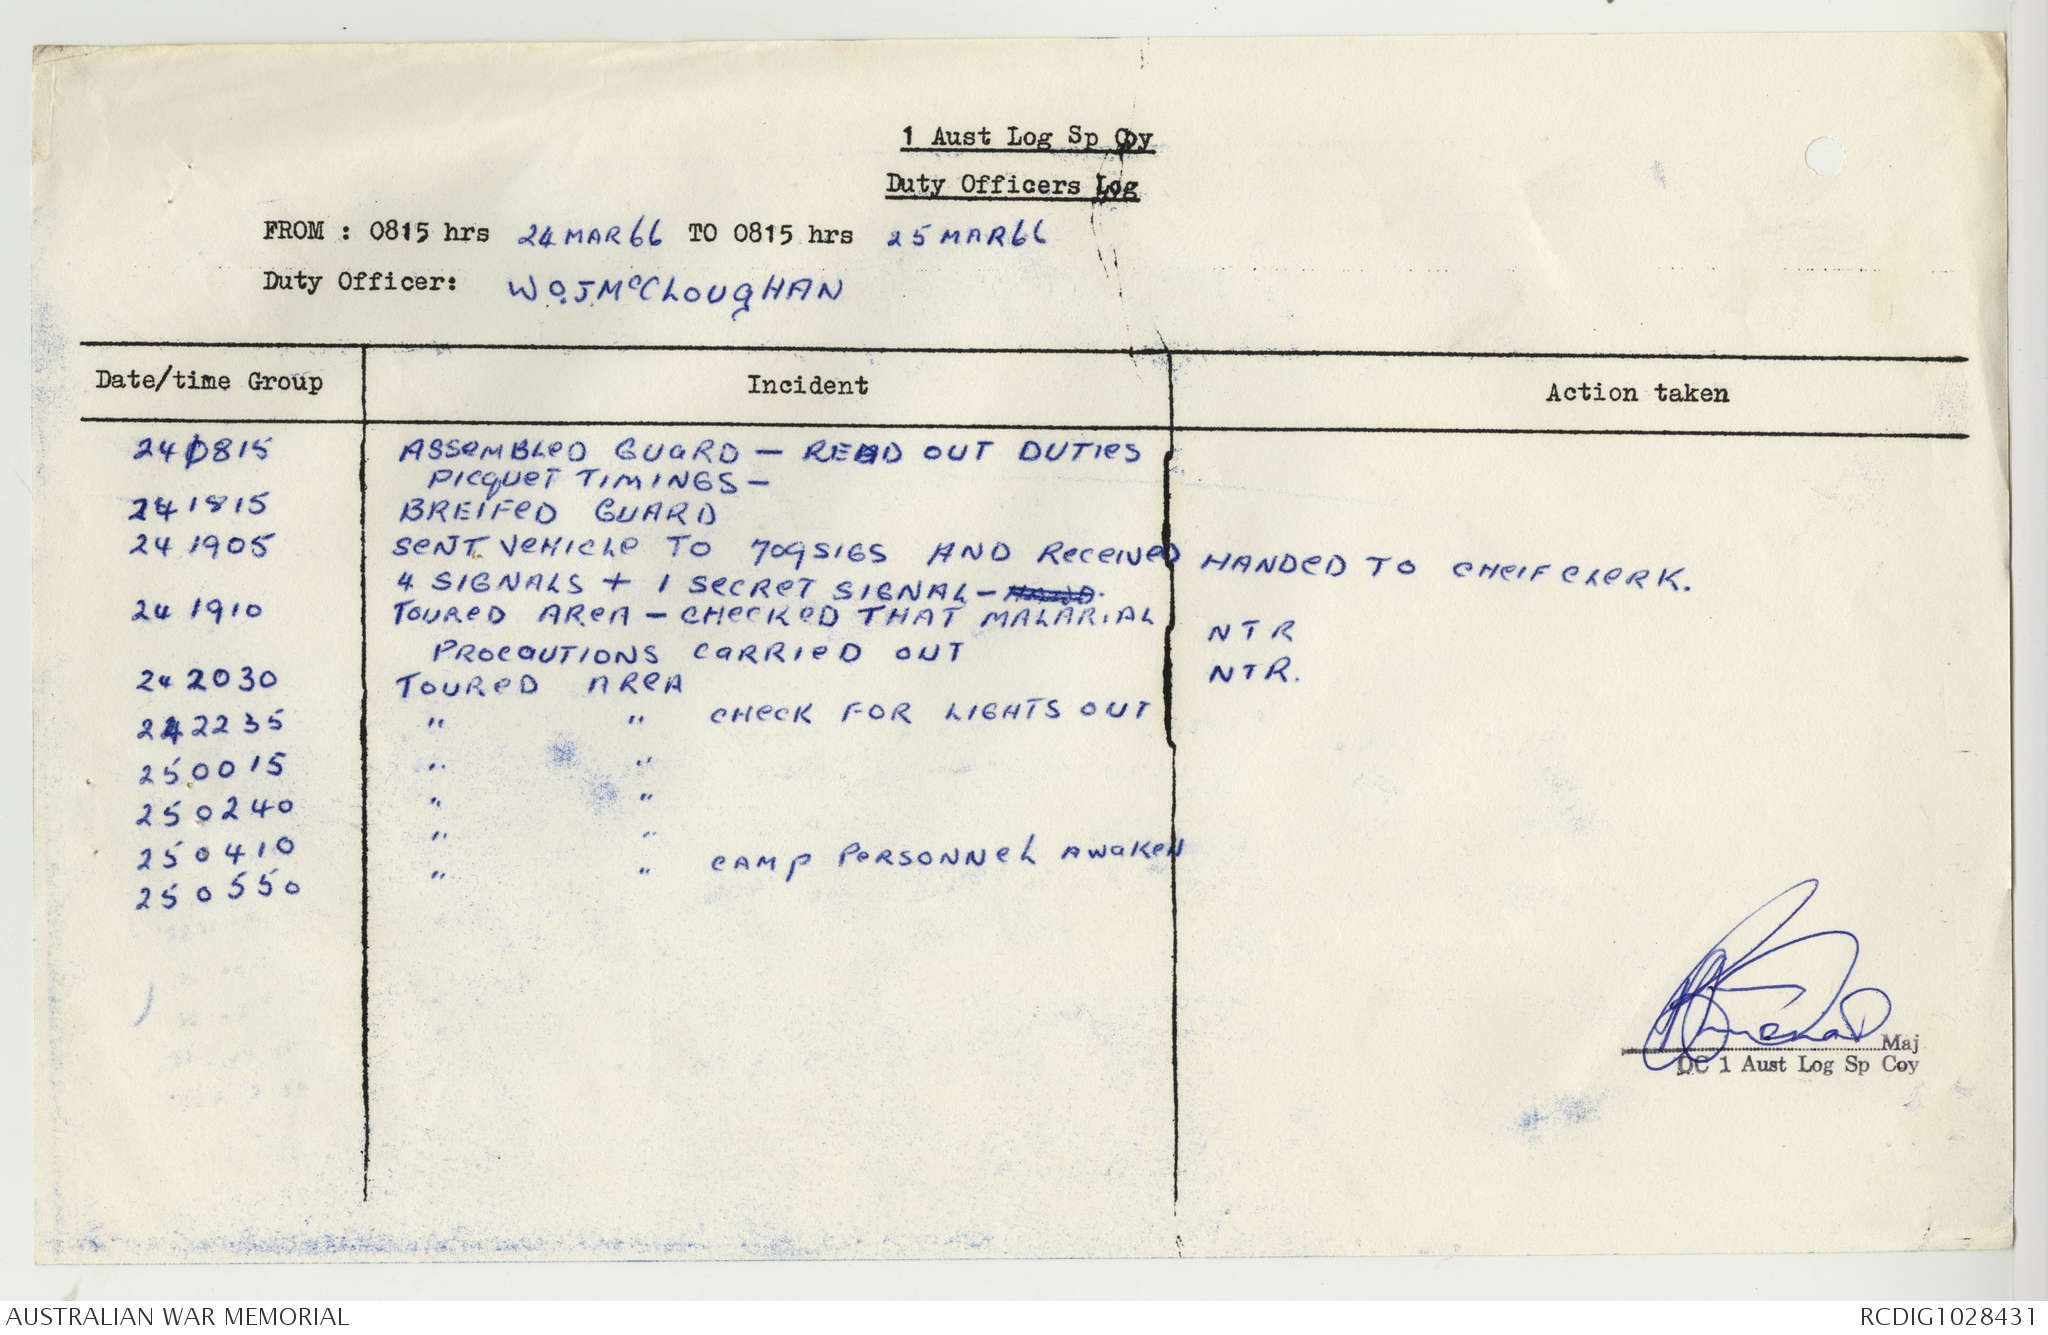 1 Aust Log Sp Coy
Duty Officers Log
FROM : 0815 hrs 24 MAR 66 TO 0815 hrs 25 MAR 66
Duty Officer: W O.J McCLOUGHAN
Date/time Group Incident Action taken
240815 ASSEMBLED GUARD — READ OUT DUTIES
PICQUET TIMINGS —
241815 BREIFED GUARD
241905 SENT VEHICLE TO 709 SIGS AND RECEIVED HANDED TO CHEIF CLERK.
4 SIGNALS + 1 SECRET SIGNAL —
241910 TOURED AREA — CHECKED THAT MALARIAL NTR
PROCAUTIONS CARRIED OUT
242030 TOURED AREA NTR.
242235 " " CHECK FOR LIGHTS OUT
250015 " "
250240 " "
250410 " "
250550 " " CAMP PERSONNEL AWAKEN
Maj
OC 1 Aust Log Sp Coy
AUSTRALIAN WAR MEMORIAL RCDIG1028431